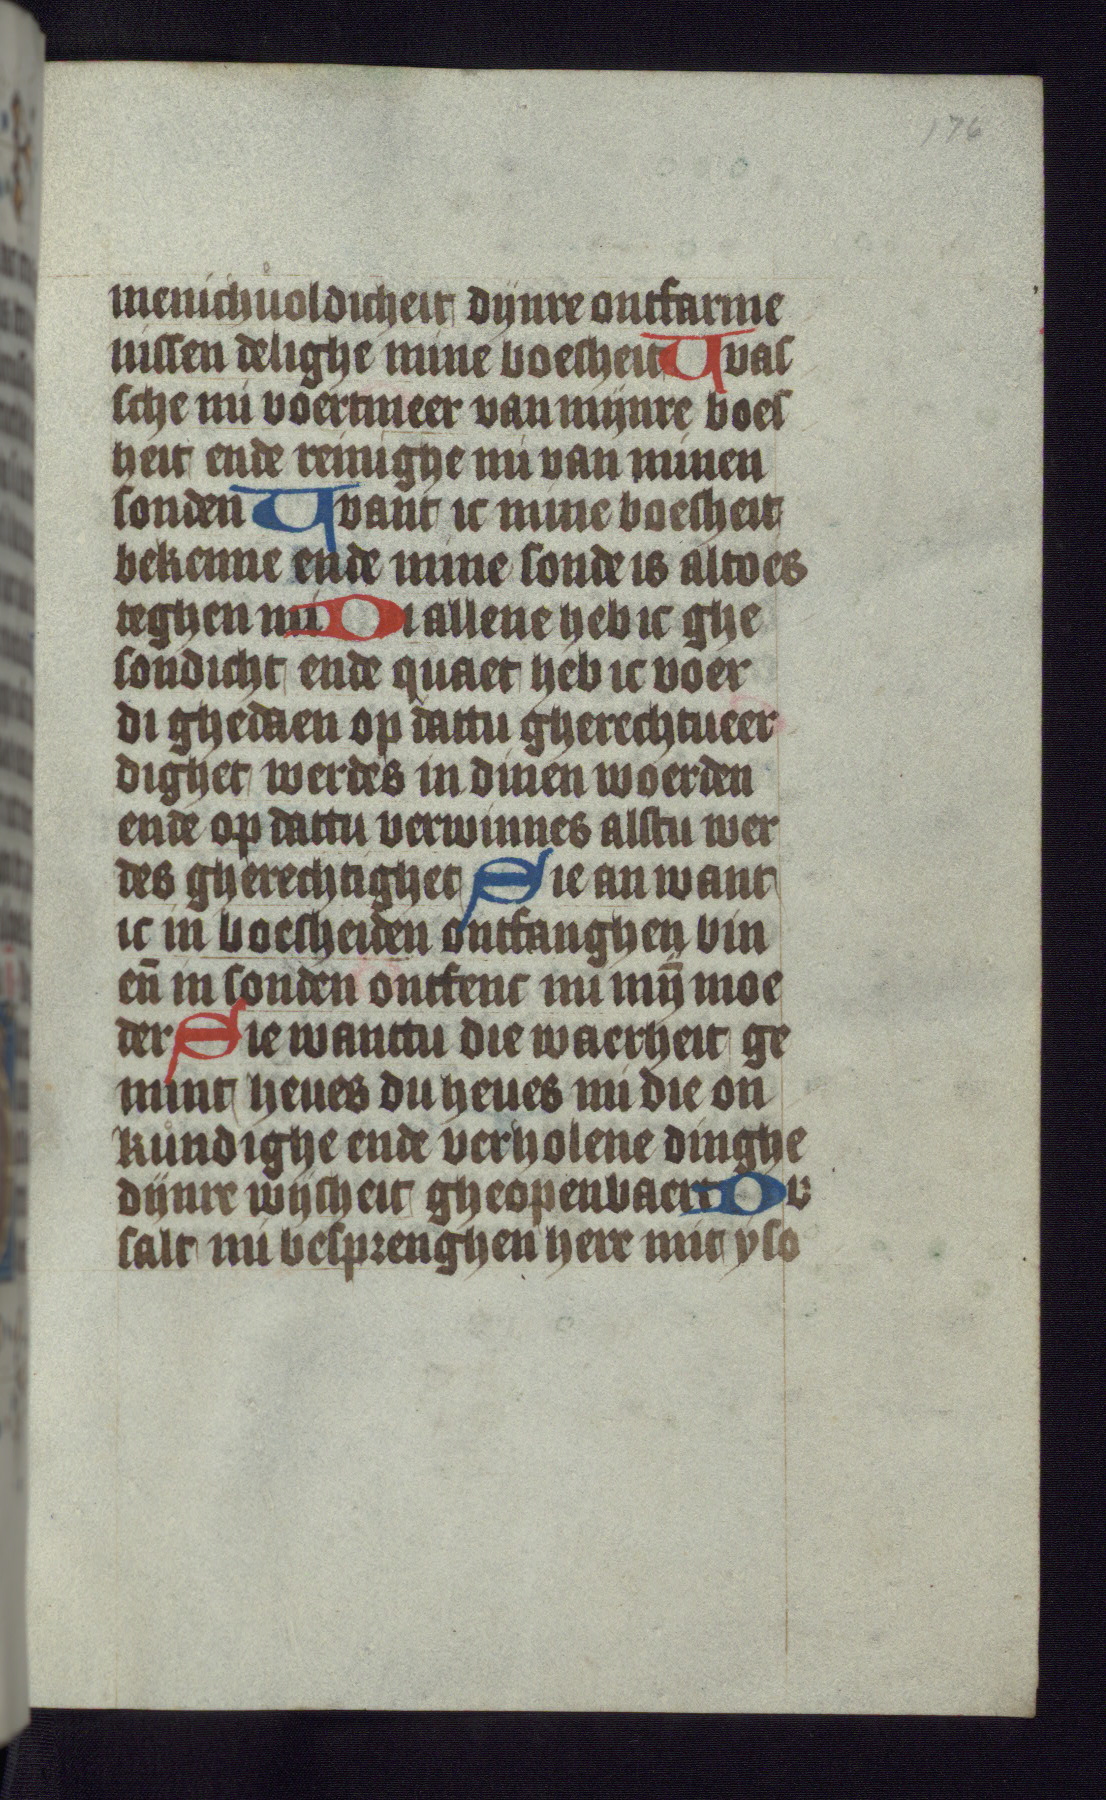 176
menichuoldicheit dijnre ontfarme
nissen delighe mine boesheit Uvas
sche mi voertmeer van mijnre boes
heit ende reinighe mi van minen
sonden Uvant ic mine boesheit
bekenne ende mine sonde is altoes
teghen mi Di allene heb ic ghe
sondicht ende quaet heb ic voer
di ghedaen op dattu gherechtueer
dighet werdes in dinen woerden
ende op dattu verwinnes alstu wer
des gherechtighet Sie an want
ic in boesheiden ontfanghen bin
en̄ in sonden ontfenc mi mȳ moe
der Sie wanttu die waerheit ge
mint heues du heues mi die on
kůndighe ende verholene dinghe
dijnre wijsheit gheopenbaert Dv
salt mi besprenghen here mit yso